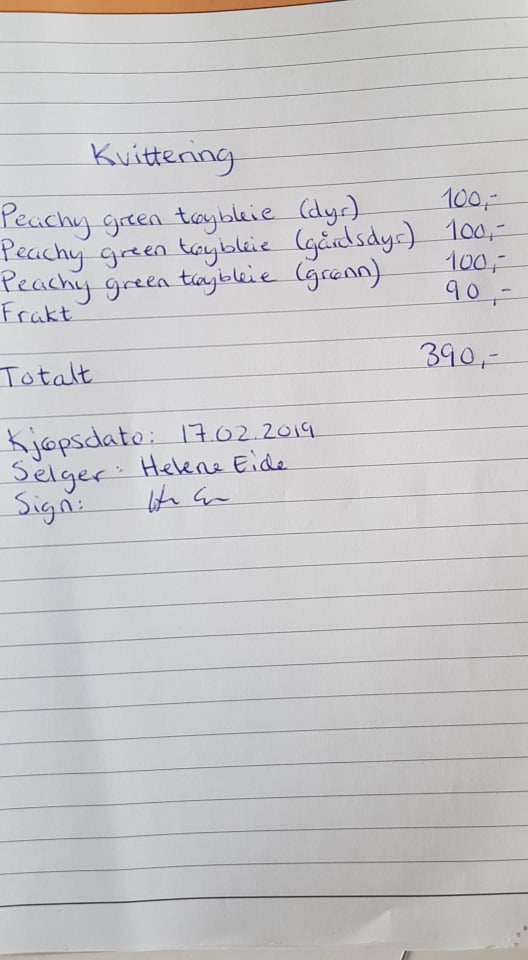 Kvittering
Peachy green tøybleie (dyr) 100,-
Peachy green tøybleie (gårdsdyr) 100,-
Peachy green tøybleie (grønn) 100,-
Frakt 90,-
Totalt 390,-
Kjøpsdato: 17.02.2019
Selger: Helene Eide
Sign: